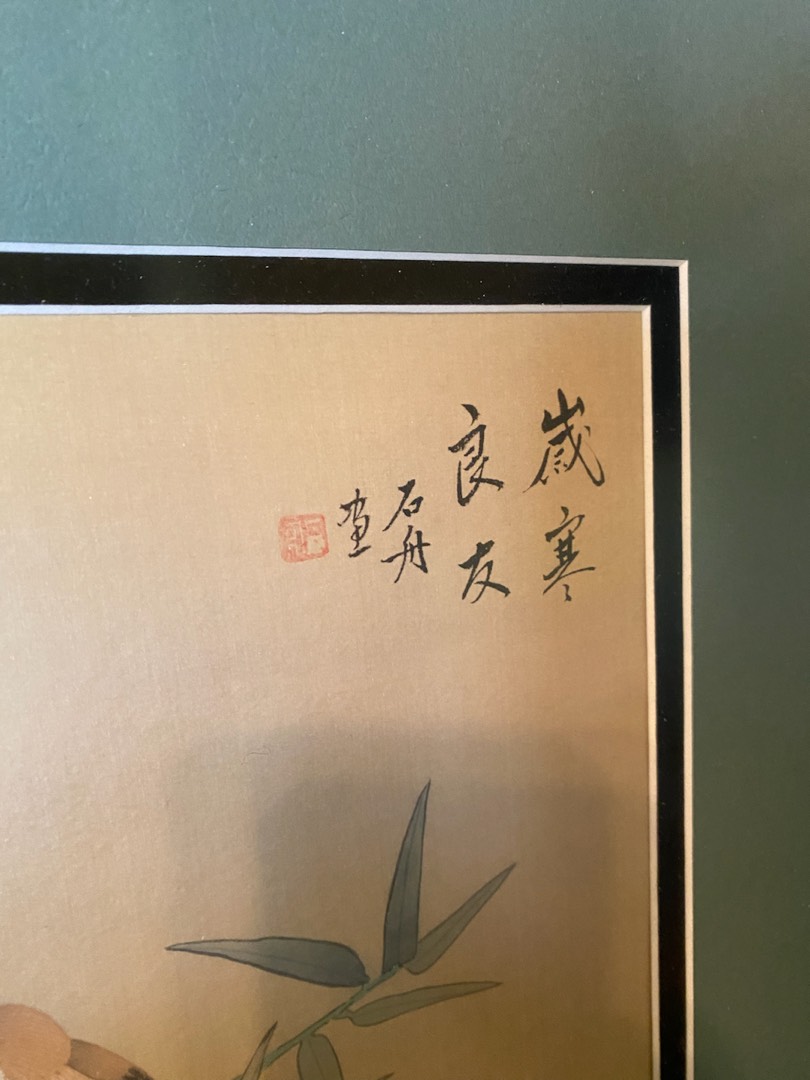 歲寒
良友
石舟
畫